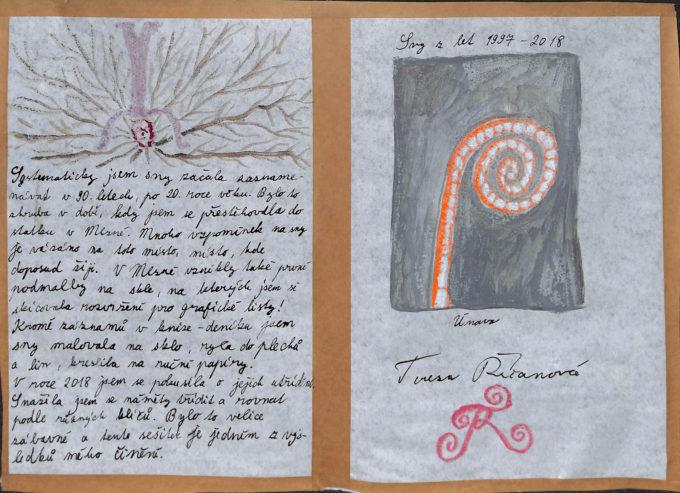 Systematicky jsem sny začala zazname-
návat v 90. letech, po 20. roce věku. Bylo to
zhruba v době, kdy jsem se přestěhovala do
statku v Mezné. Mnoho vzpomínek na sny
je vázáno na toto místo, místo, kde
doposud žiji. V Mezné vznikly také první
podmalby na skle, na kterých jsem si
skicovala rozvržení pro grafické listy!
Kromě záznamů v knize-deníku jsem
sny malovala na sklo, ryla do plechů
a lin, kreslila na ruční papíry.
V roce 2018 jsem se pokusila o jejich utřídění.
Snažila jsem se náměty třídit a rovnat
podle různých klíčů. Bylo to velice
zábavné a tento sešitek je jedním z výs-
ledků mého čínění.
Sny z let 1997-2018
Únava
Tereza Říčanová